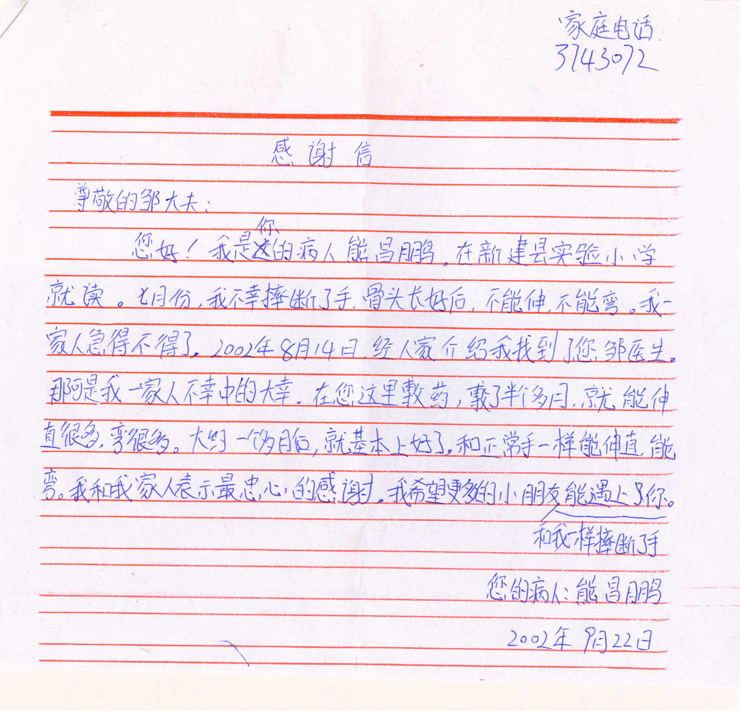 家庭电话
3743072
感谢信
尊敬的邹大夫:
你
您好!我是的病人能昌鹏。在新建县实验小学
就读。七月份,我不幸摔断了手,骨头长好后,不能伸,不能弯。我一
家人急得不得了。2002年8月14日,经人家介绍我找到了您,邹医生。
那阿是我一家人不幸中的大幸。在您这里敷药,敷了半个多月,就能伸
直很多,弯很多。大约一个多月后,就基本上好了。和正常手一样能伸直,能
弯。我和我家人表示最忠心的感谢。我希望更多的小朋友能遇上了你。
和我一样摔断了手
您的病人:能昌鹏
2002年9月22日